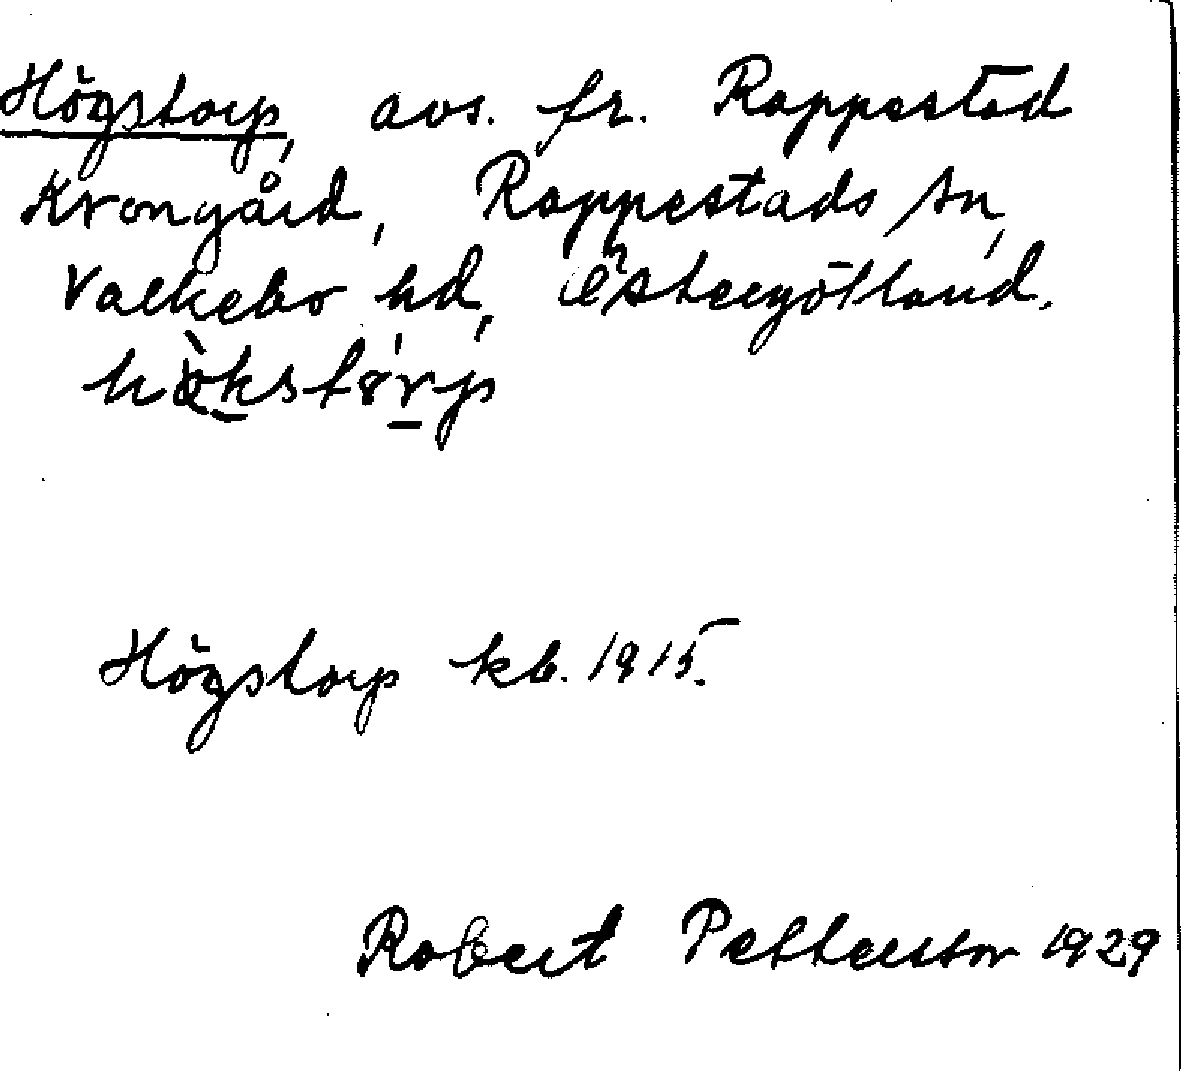 Högstorp, avs. fr. Rappestad
Krongård, Rappestads sn,
Valkebo hd, Östergötland.
hö̀kstórp
Högstorp kb. 1915.
Robert Petterson 1929